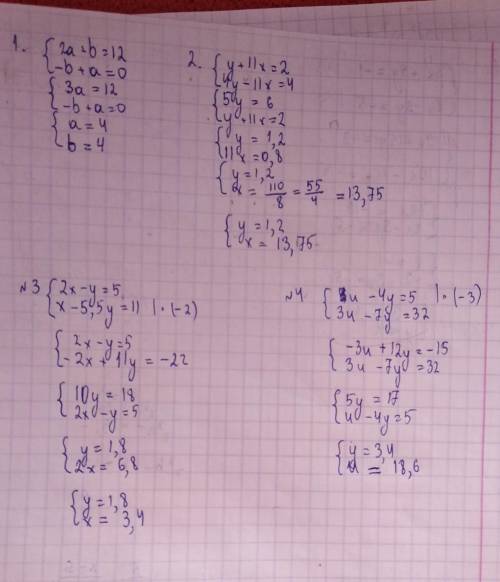 1. { 2a + b = 12
-b + a = 0
{ 3a = 12
-b + a = 0
{ a = 4
b = 4
2. { y + 11x = 2
4y - 11x = 4
{ 5y = 6
y + 11x = 2
{ y = 1,2
11x = 0,8
{ y = 1,2
x = 110/8 = 55/4 = 13,75
{ y = 1,2
x = 13,75
№3 { 2x - y = 5
x - 5,5y = 11 | · (-2)
{ 2x - y = 5
-2x + 11y = -22
{ 10y = 18
2x - y = 5
{ y = 1,8
2x = 6,8
{ y = 1,8
x = 3,4
№4 { u - 4y = 5 | · (-3)
3u - 7y = 32
{ -3u + 12y = -15
3u - 7y = 32
{ 5y = 17
u - 4y = 5
{ y = 3,4
u = 18,6